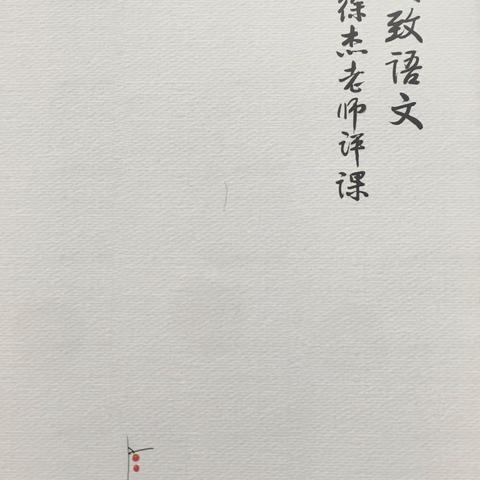 致语文
徐杰老师评课